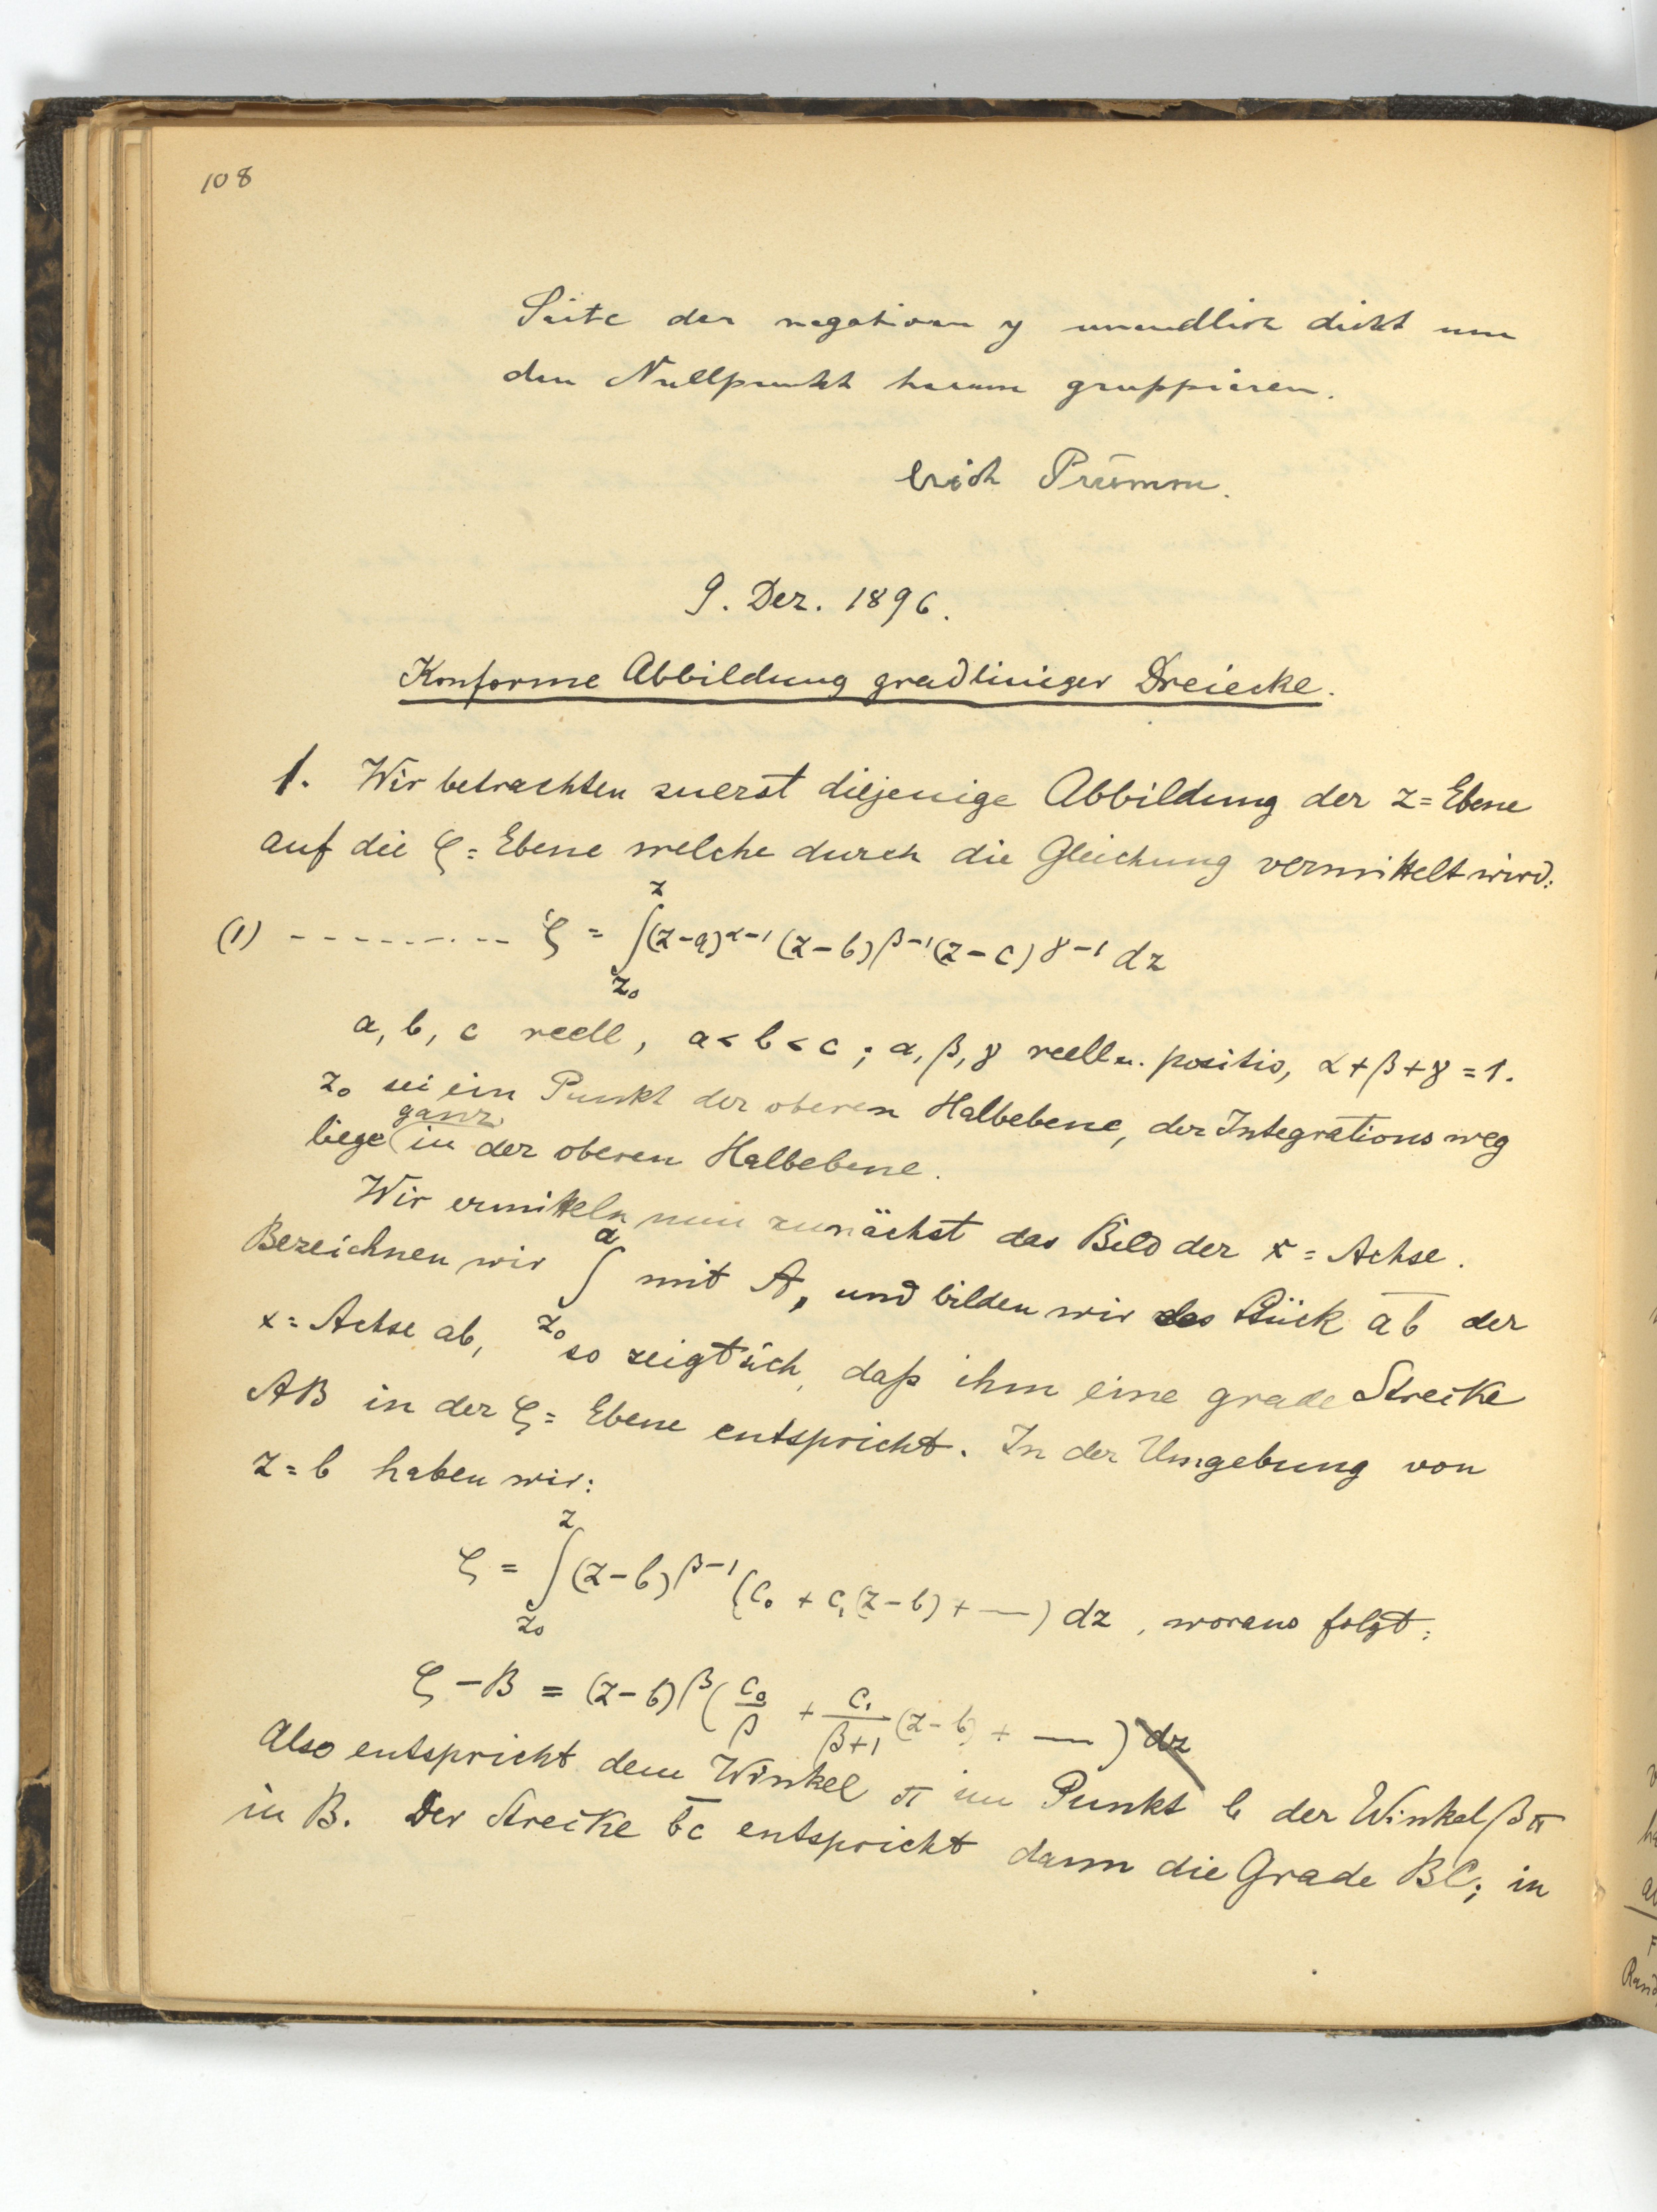 108
Seite der negativen y unendlich dicht um
den Nullpunkt herum gruppieren.
Erich Prümm.
9. Dez. 1896.
Konforme Abbildung gradliniger Dreiecke.
1. Wir betrachten zuerst diejenige Abbildung der z=Ebene
auf die ζ=Ebene welche durch die Gleichung vermittelt wird:
(1) ---------- ζ = ∫_{z₀}^{z} (z-a)^{α-1} (z-b)^{β-1} (z-c)^{γ-1} dz
a, b, c reell, a<b<c; α, β, γ reell u. positiv, α+β+γ=1.
z₀ sei ein Punkt der oberen Halbebene, der Integrationsweg
liege ganz in der oberen Halbebene.
Wir ermitteln nun zunächst das Bild der x=Achse.
Bezeichnen wir ∫_{z₀}^{a} mit A, und bilden wir das Stück \overline{ab} der
x=Achse ab, so zeigt sich, daß ihm eine grade Strecke
AB in der ζ=Ebene entspricht. In der Umgebung von
z=b haben wir:
ζ = ∫_{z₀}^{z} (z-b)^{β-1} (c₀ + c₁(z-b) + —) dz, woraus folgt:
ζ-B = (z-b)^β (c₀/β + c₁/(β+1) (z-b) + —) dz
Also entspricht dem Winkel π im Punkt b der Winkel βπ
in B. Der Strecke \overline{bc} entspricht dann die Grade BC; in